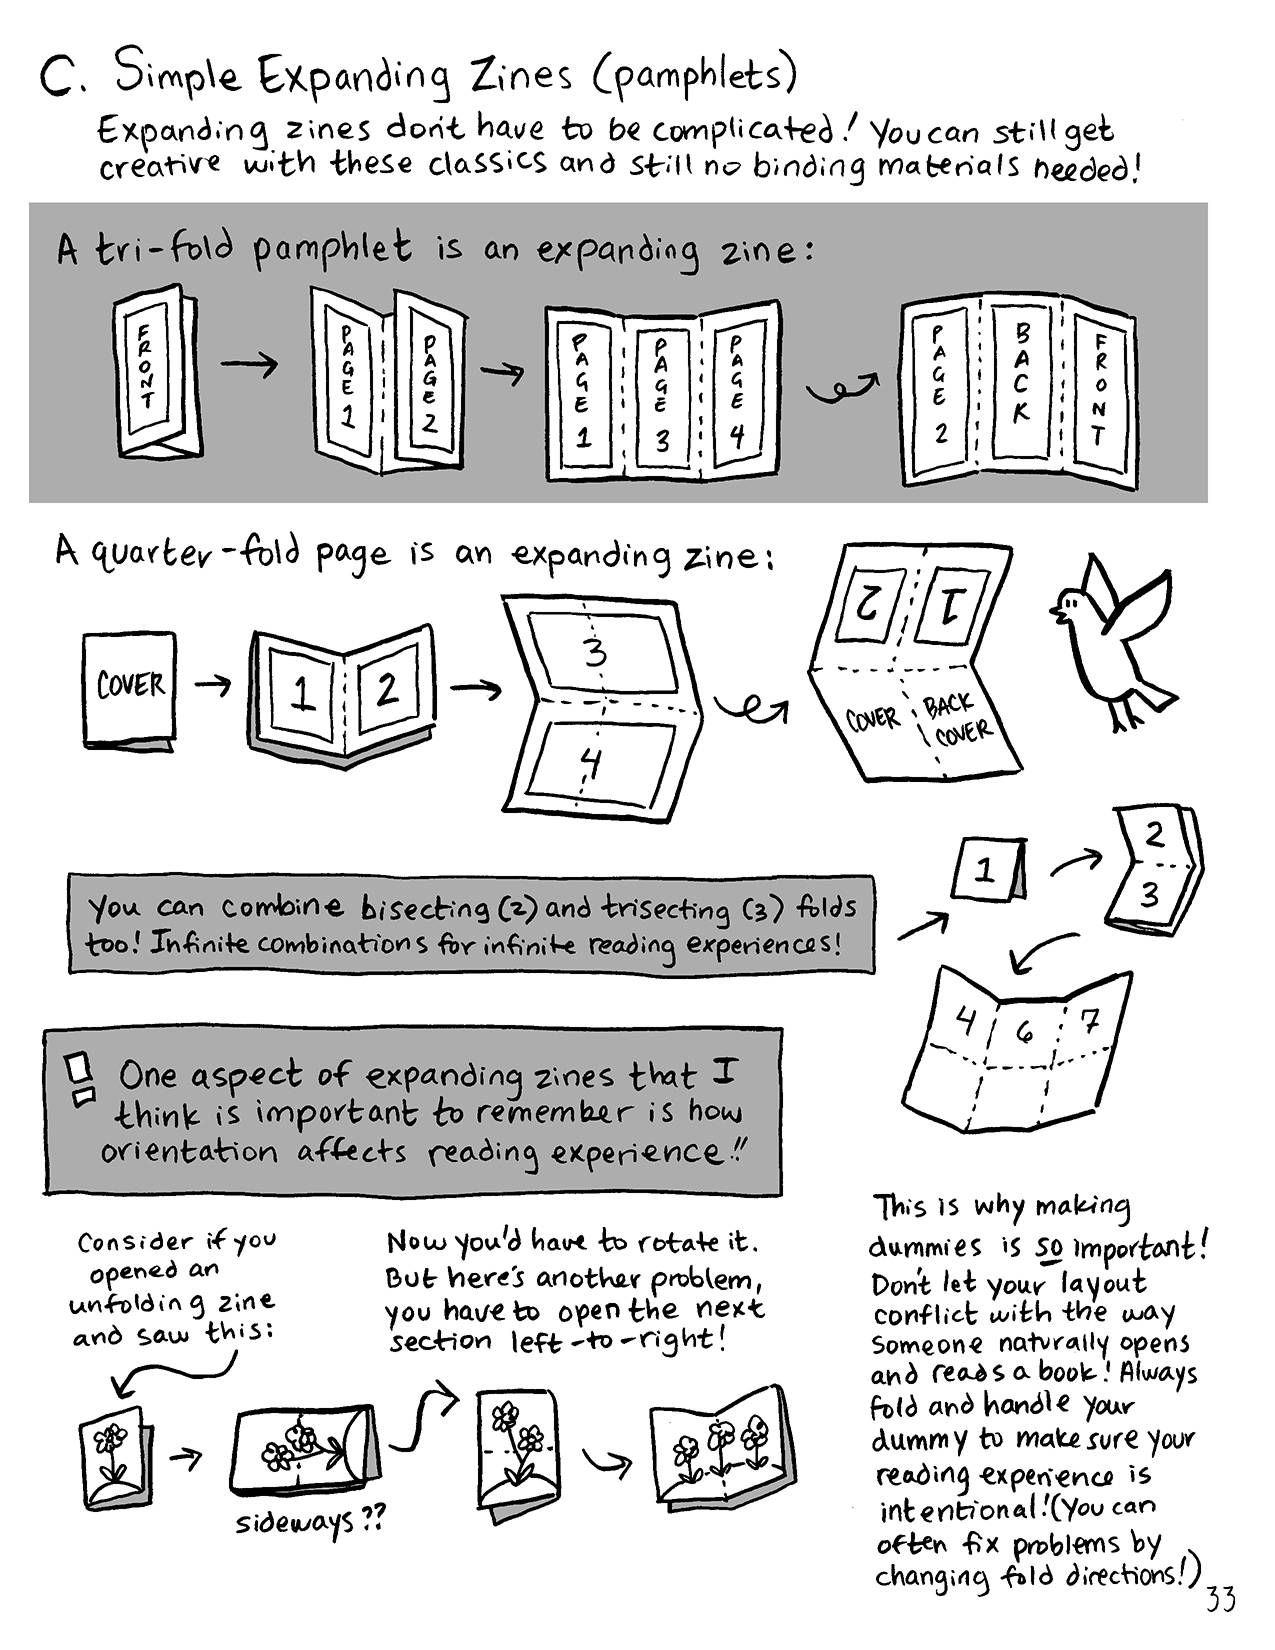 C. Simple Expanding Zines (pamphlets)
Expanding zines don't have to be complicated! You can still get
creative with these classics and still no binding materials needed!
A tri-fold pamphlet is an expanding zine:
FRONT
PAGE 1
PAGE 2
PAGE 1
PAGE 3
PAGE 4
PAGE 2
BACK
FRONT
A quarter-fold page is an expanding zine:
COVER
1
2
3
4
2
1
COVER
BACK
COVER
You can combine bisecting (2) and trisecting (3) folds
too! Infinite combinations for infinite reading experiences!
1
2
3
4
6
7
!! One aspect of expanding zines that I
think is important to remember is how
orientation affects reading experience!!
Consider if you
opened an
unfolding zine
and saw this:
sideways??
Now you'd have to rotate it.
But here's another problem,
you have to open the next
section left-to-right!
This is why making
dummies is so important!
Don't let your layout
conflict with the way
someone naturally opens
and reads a book! Always
fold and handle your
dummy to make sure your
reading experience is
intentional! (You can
often fix problems by
changing fold directions!)
33